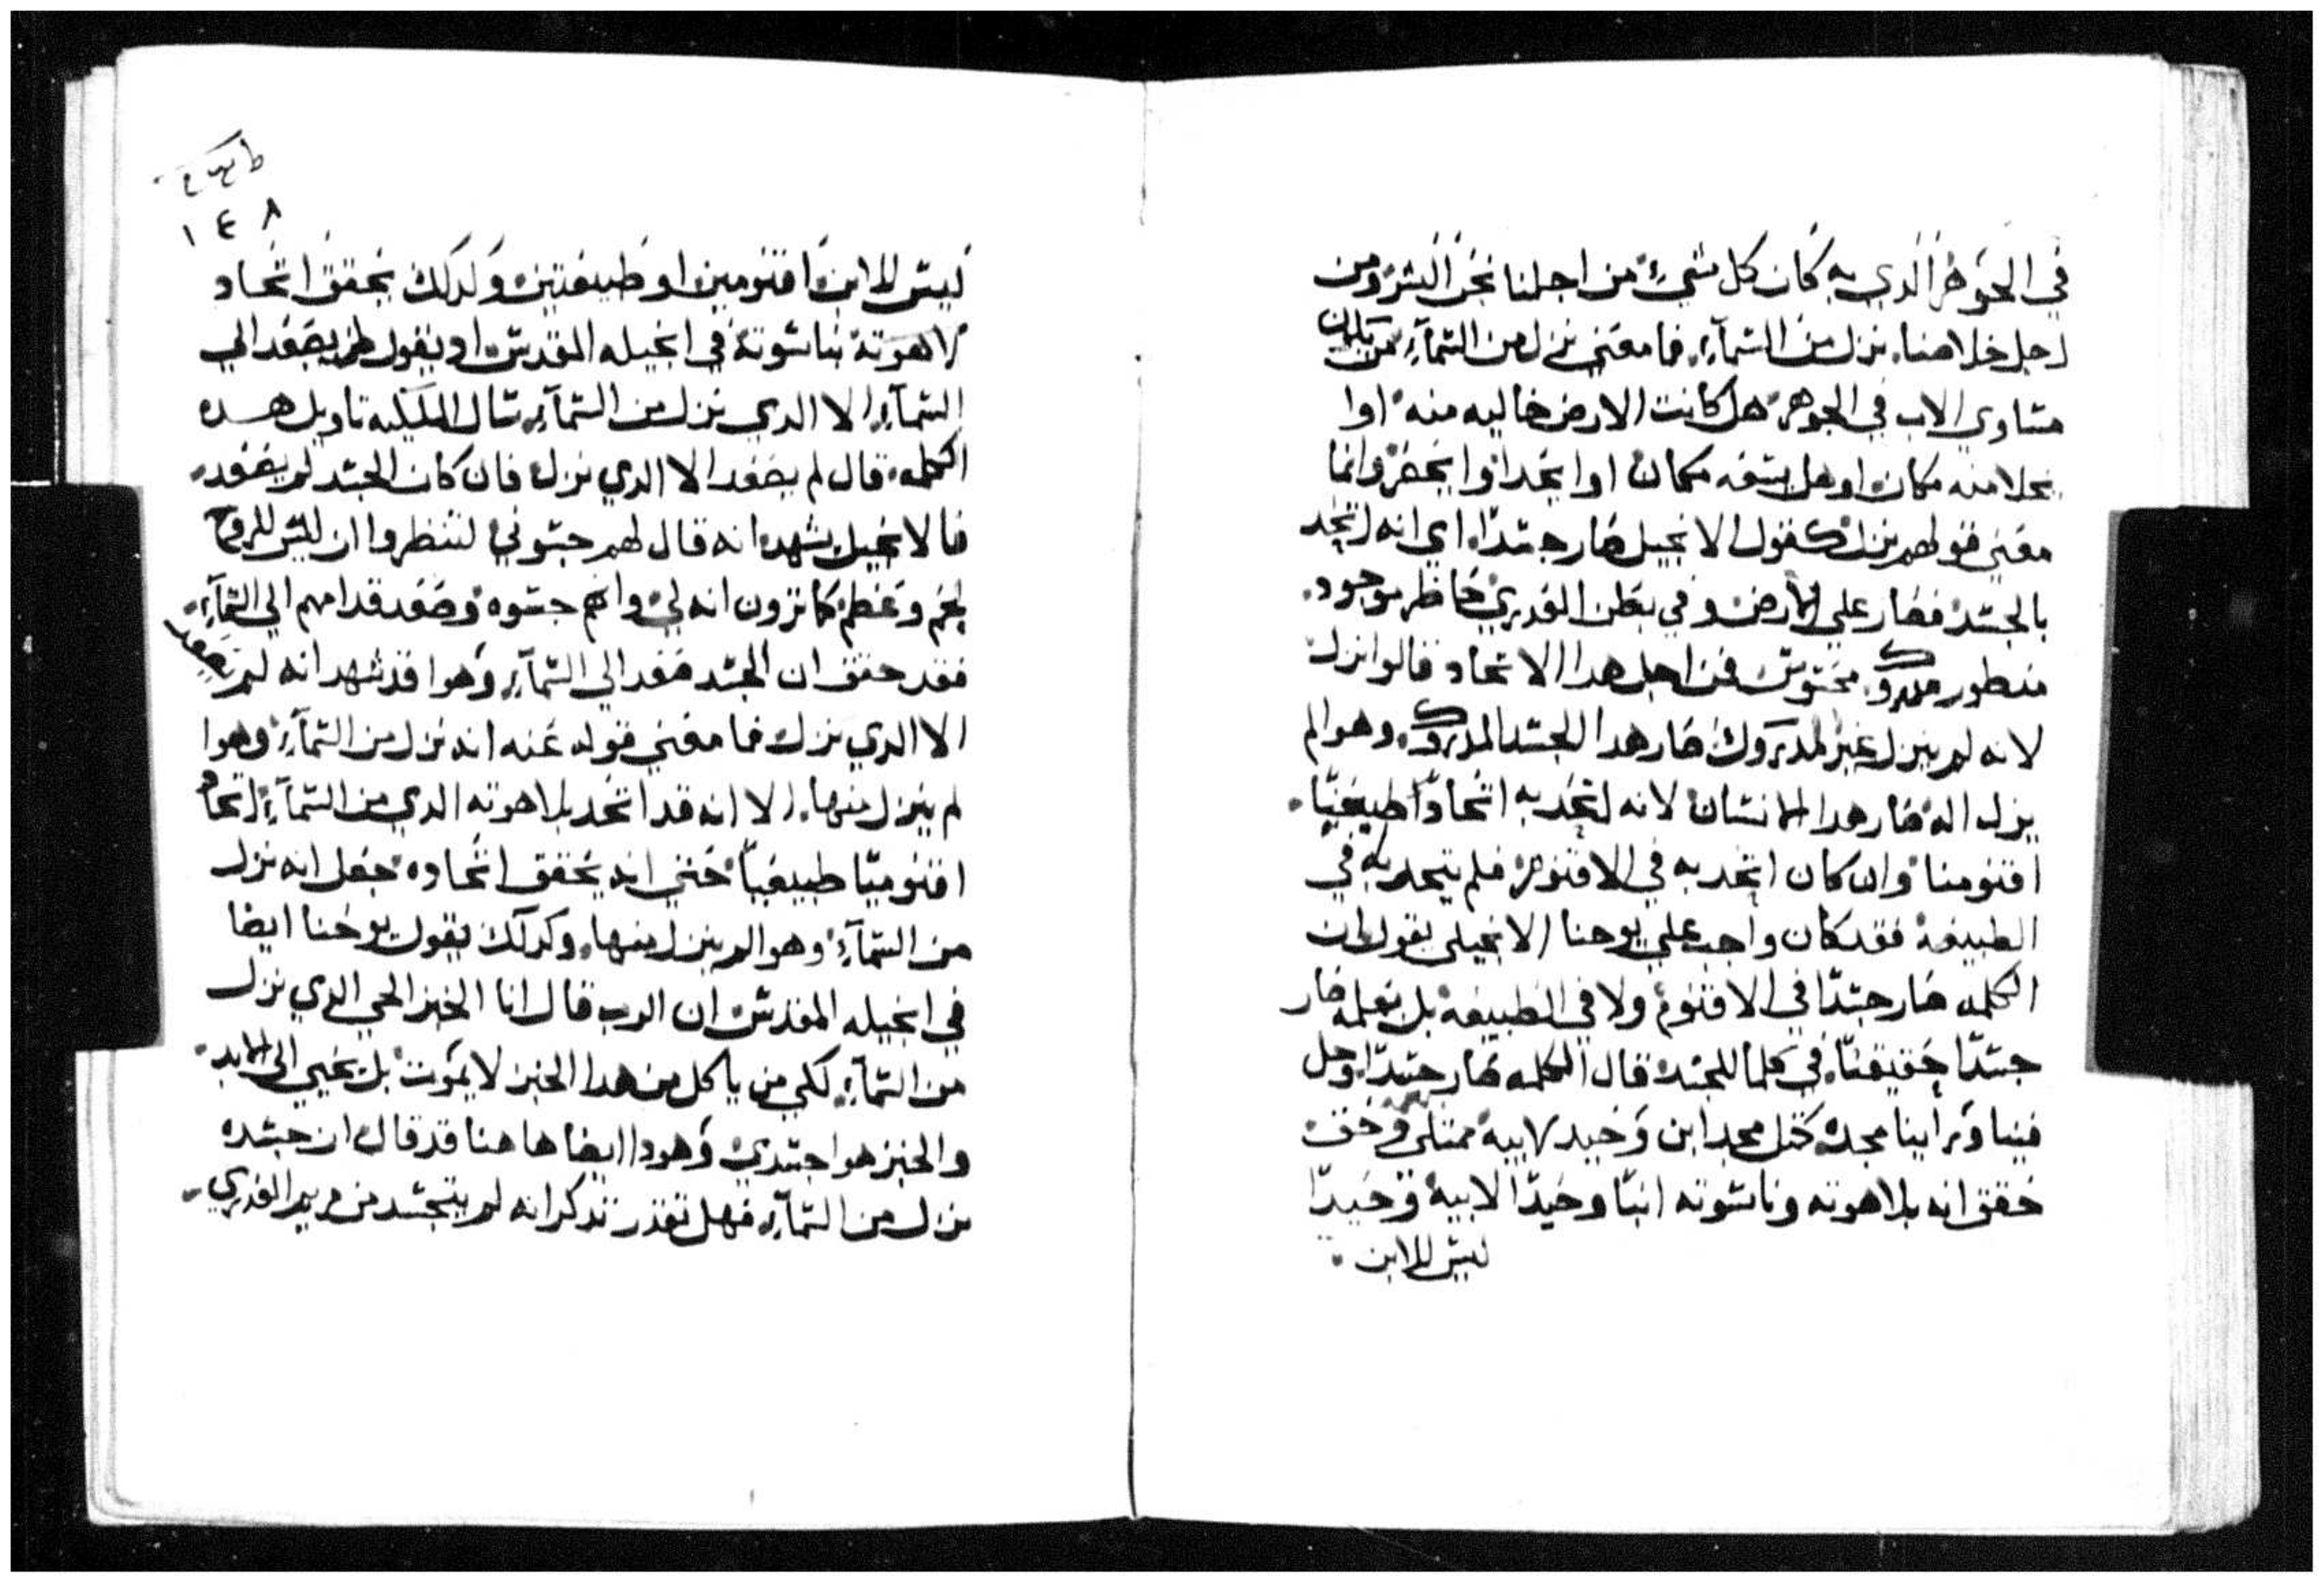 في الجوهر الدي به كان كل شيء من اجلنا نحن البشر ومن
اجل خلاصنا. نزل من السمآء. فما معني نزل من السمآء من
متساوي الاب في الجوهر هل كانت الارض خاليه منه اوا
يخلا منه مكان او هل يسعه مكان اوا يحد اوا يحصر وانما
معني قولهم نزل كقول الانجيل صار جسدًا. اي انه اتحد
بالجسد فصار علي الارض وفي بطن العدري حاظر موجود.
منطور مدروك. محسوس فمن اجل هدا الاتحاد قالوا نزل
لانه لم ينزل غير المدروك صار هدا الجسد المدروك. وهو الم
يزل اله صار هدا الانسان لانه اتحد به اتحادًا طبيعيًا.
اقنومنا وان كان اتحد به في الاقنوم فلم يتحد به في
الطبيعه فقد كان واجب علي يوحنا الانجيلي يقول ان
الكلمه صار جسدًا في الاقنوم ولا في الطبيعه بل صار
جسدًا حقيقيًا. في كلما للجسد قال الكلمه صار جسدًا. وحل
فينا وراينا مجده مثل مجد ابن وحيد لابيه ممتلي وحق
حقق انه بلاهوته وناسوته ابنًا وحيدًا لابيه وحيدًا
ليس للابن.
١٤٨
ليس للابن اقنومين او طبيعتين ولدلك يحقق اتحاد
لاهوته بناسوته في انجيله المقدس اد يقول لم يصعد الي
السمآء. الا الدي نزل من السمآء. سال الملكيه تاويل هده
الكلمه. قال لم يصعد الا الدي نزل فان كان الجسد لم يصعد.
فالانجيل يشهد انه قال لهم جسوني لتنظروا ان ليس للروح
لحم وعظم كما ترون انه لي وانهم جسوه وصعد قدامهم الي السمآء.
فقد حقق ان الجسد صعد الي السمآء. وهوا قد شهد انه لم يصعد
الا الدي نزل فما معني قوله عنه انه نزل من السمآء وهوا
لم ينزل منها. الا انه قد اتحد بلاهوته الدي من السمآء اتحادًا
اقنوميًا طبيعيًا حتي انه يحقق اتحاده جعل انه نزل
من السمآء وهو الم ينزل منها. وكدلك يقول يوحنا ايضا
في انجيله المقدس ان الرب قال انا الخبز الحي الدي نزل
من السمآء. لكي من ياكل من هدا الخبز لا يموت بل يحيي الي الابد.
والخبز هوا جسدي وهودا ايضا هاهنا قد قال ان جسده
نزل من السمآء. فهل تقدر تدكر انه لم يتجسد من مريم العدري.